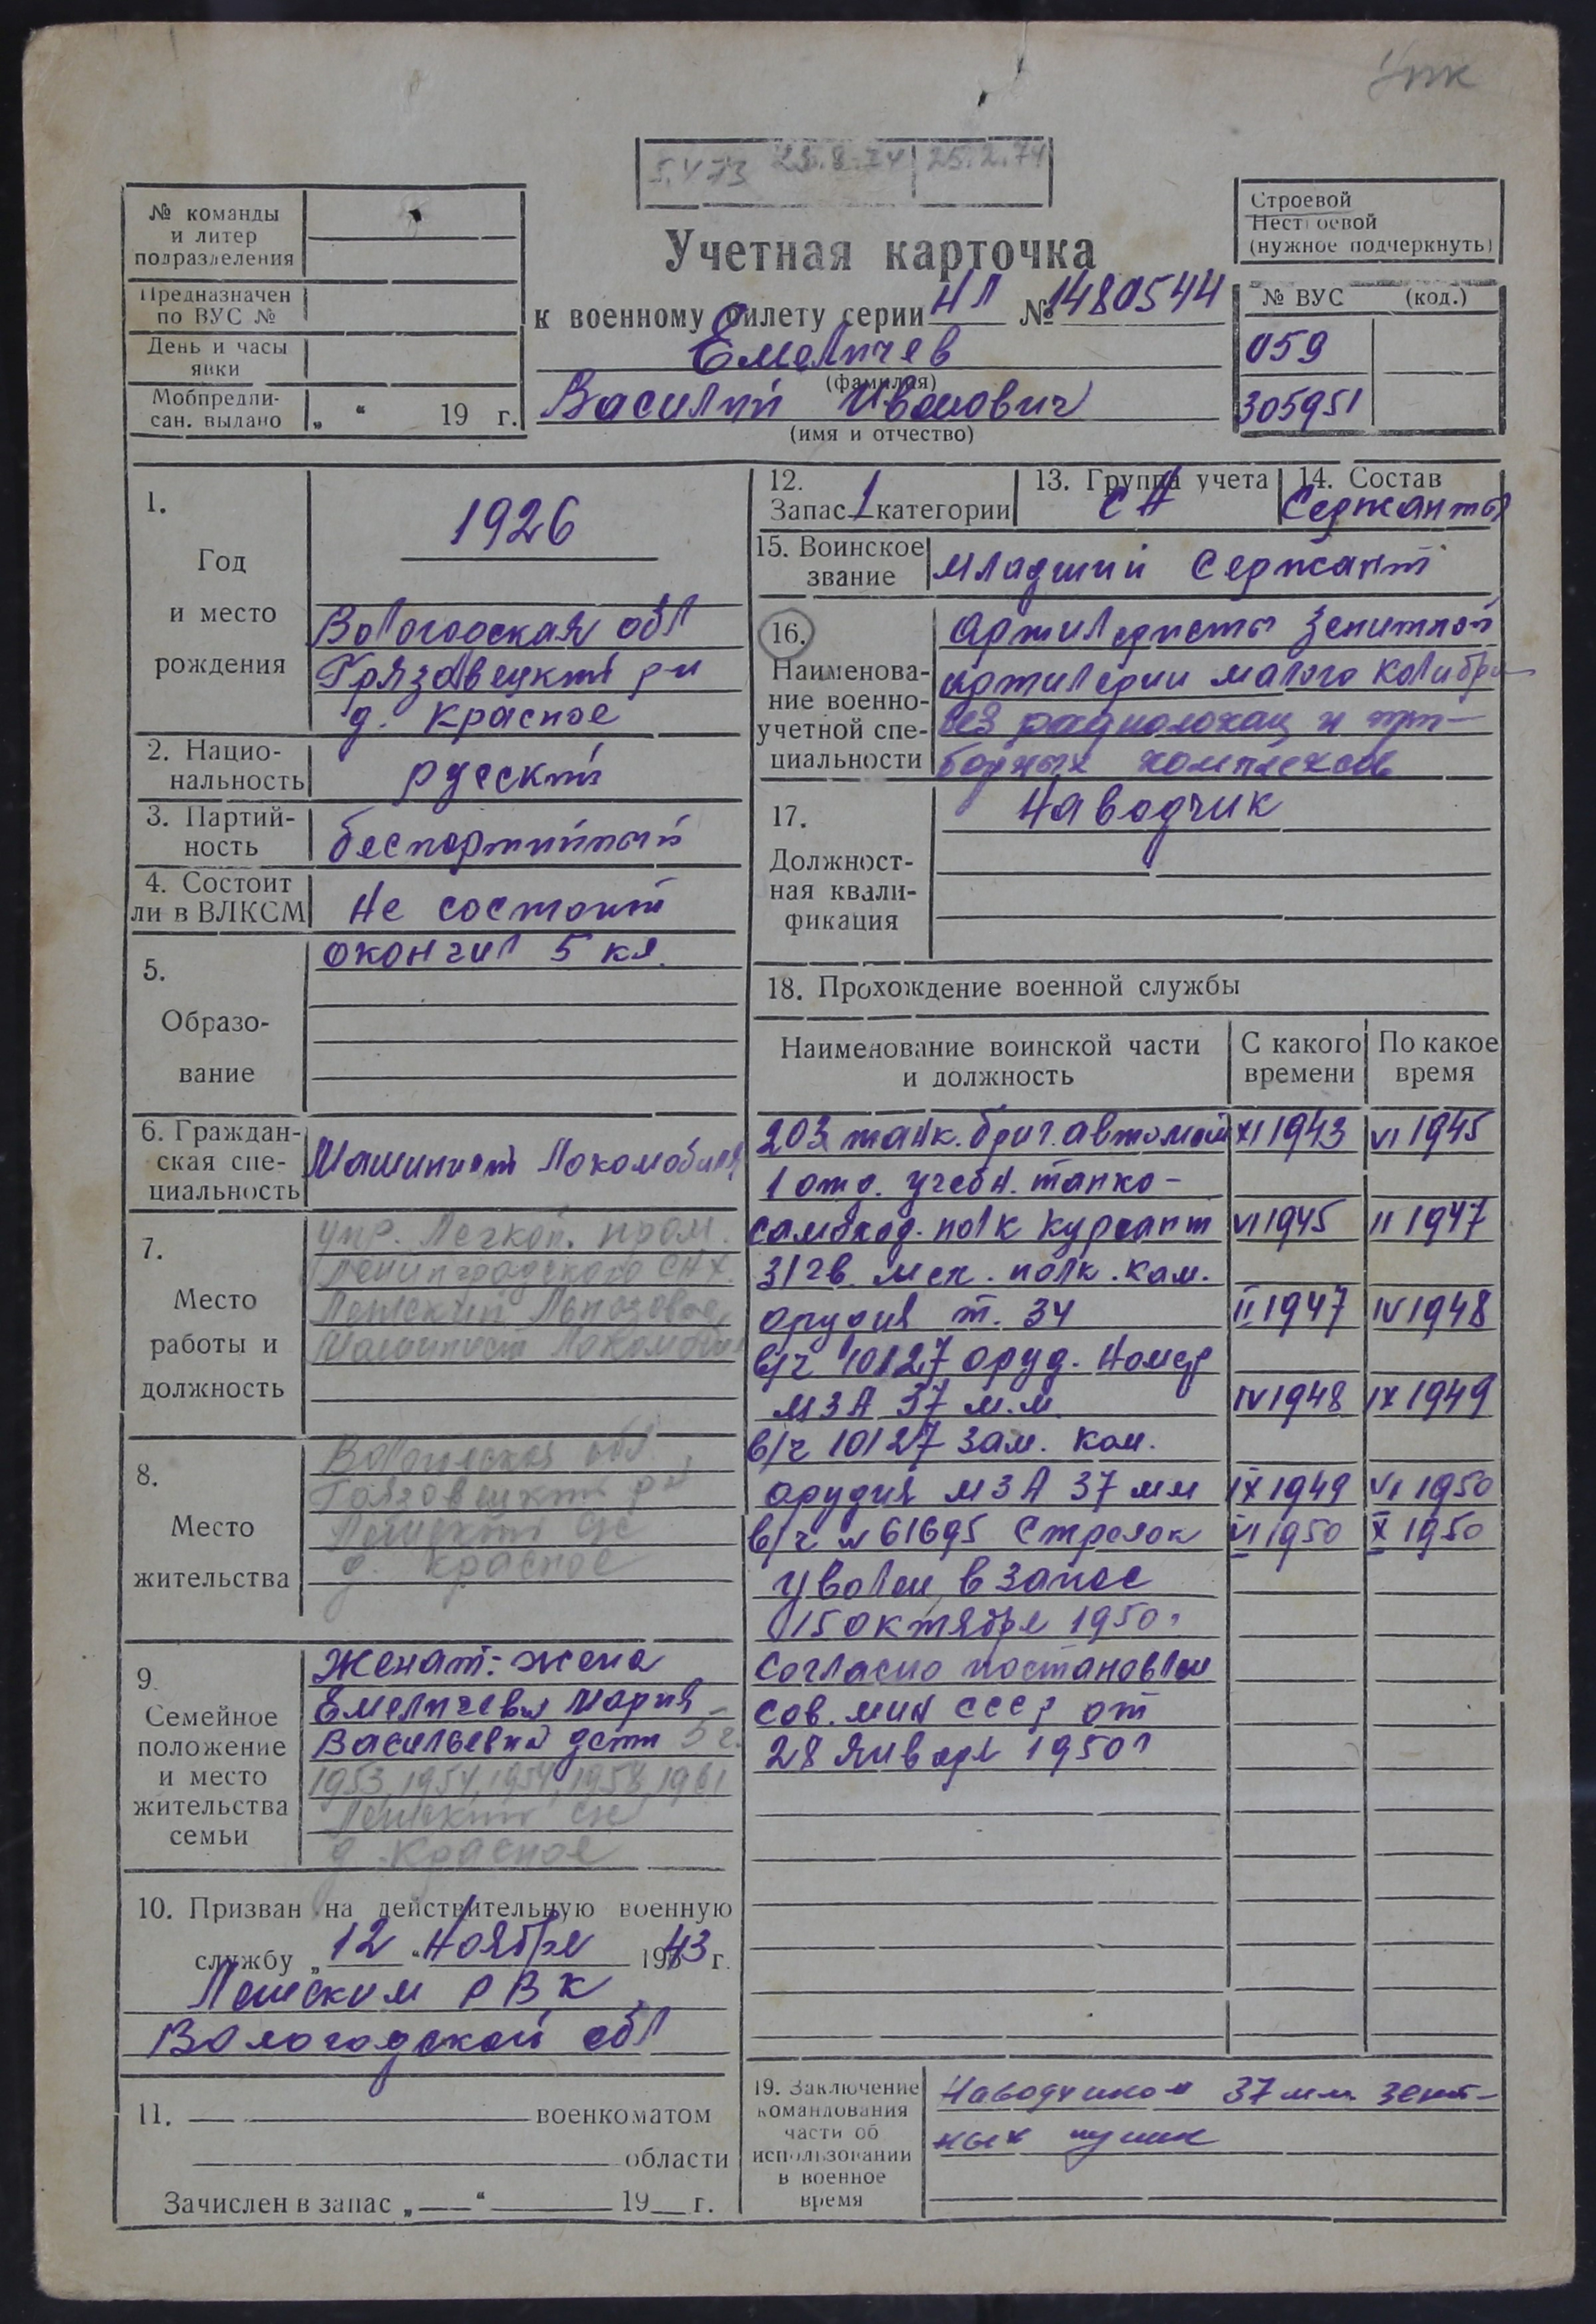 Упк
5.4 73 23.8.74 25.2.74
№ команды
и литер
подразделения
Предназначен
по ВУС №
День и часы
явки
Мобпредпи-
сан. выдано „ “ 19 г.
Учетная карточка
к военному билету серии НЛ № 1480544
Емеличев
(фамилия)
Василий Иванович
(имя и отчество)
Строевой
Нестроевой
(нужное подчеркнуть)
№ ВУС (код.)
059
305951
1.
Год
и место
рождения
1926
Вологодская обл
Грязовецкий р-н
д. Красное
2. Нацио-
нальность
русский
3. Партий-
ность
беспартийный
4. Состоит
ли в ВЛКСМ
Не состоит
5.
Образо-
вание
окончил 5 кл.
6. Граждан-
ская спе-
циальность
Машинист Локомобиля
7.
Место
работы и
должность
упр. Легкой. пром.
Ленинградского СНХ.
Лежский Льнозавод
Машинист Локомобиля
8.
Место
жительства
Вологодская обл
Грязовецкий р-н
Лежский с/с
д. Красное
9.
Семейное
положение
и место
жительства
семьи
Женат: жена
Емеличева Мария
Васильевна дети 5 ч.
1953, 1954, 1954, 1958, 1961
Лежский с/с
д. Красное
10. Призван на действительную военную
службу „ 12 “ Ноября 1943 г.
Лежским РВК
Вологодской обл
11. военкоматом
области
Зачислен в запас „ “ 19 г.
12.
Запас 1 категории
13. Группа учета
СА
14. Состав
Сержанты
15. Воинское
звание
Младший Сержант
16.
Наименова-
ние военно-
учетной спе-
циальности
Артилеристы Зенитной
артилерии малого калибра
без радиолокац и при-
борных комплексов
17.
Должност-
ная квали-
фикация
Наводчик
18. Прохождение военной службы
Наименование воинской части
и должность
С какого
времени
По какое
время
203 танк. бриг. автомат XI 1943 VI 1945
1 отд. учебн. танко-
самоход. полк Курсант VI 1945 II 1947
31 гв. мех. полк. ком.
орудия т. 34 II 1947 IV 1948
в/ч 10127 оруд. Номер
МЗА 37 м.м. IV 1948 IX 1949
в/ч 10127 зам. ком.
орудия МЗА 37 мм IX 1949 VI 1950
в/ч № 61695 Стрелок VI 1950 X 1950
Уволен в запас
15 октября 1950г
Согласно постановлен
Сов. мин СССР от
28 Января 1950г
19. Заключение
командования
части об
использовании
в военное
время
Наводчиком 37 мм. зенит-
ных пушек